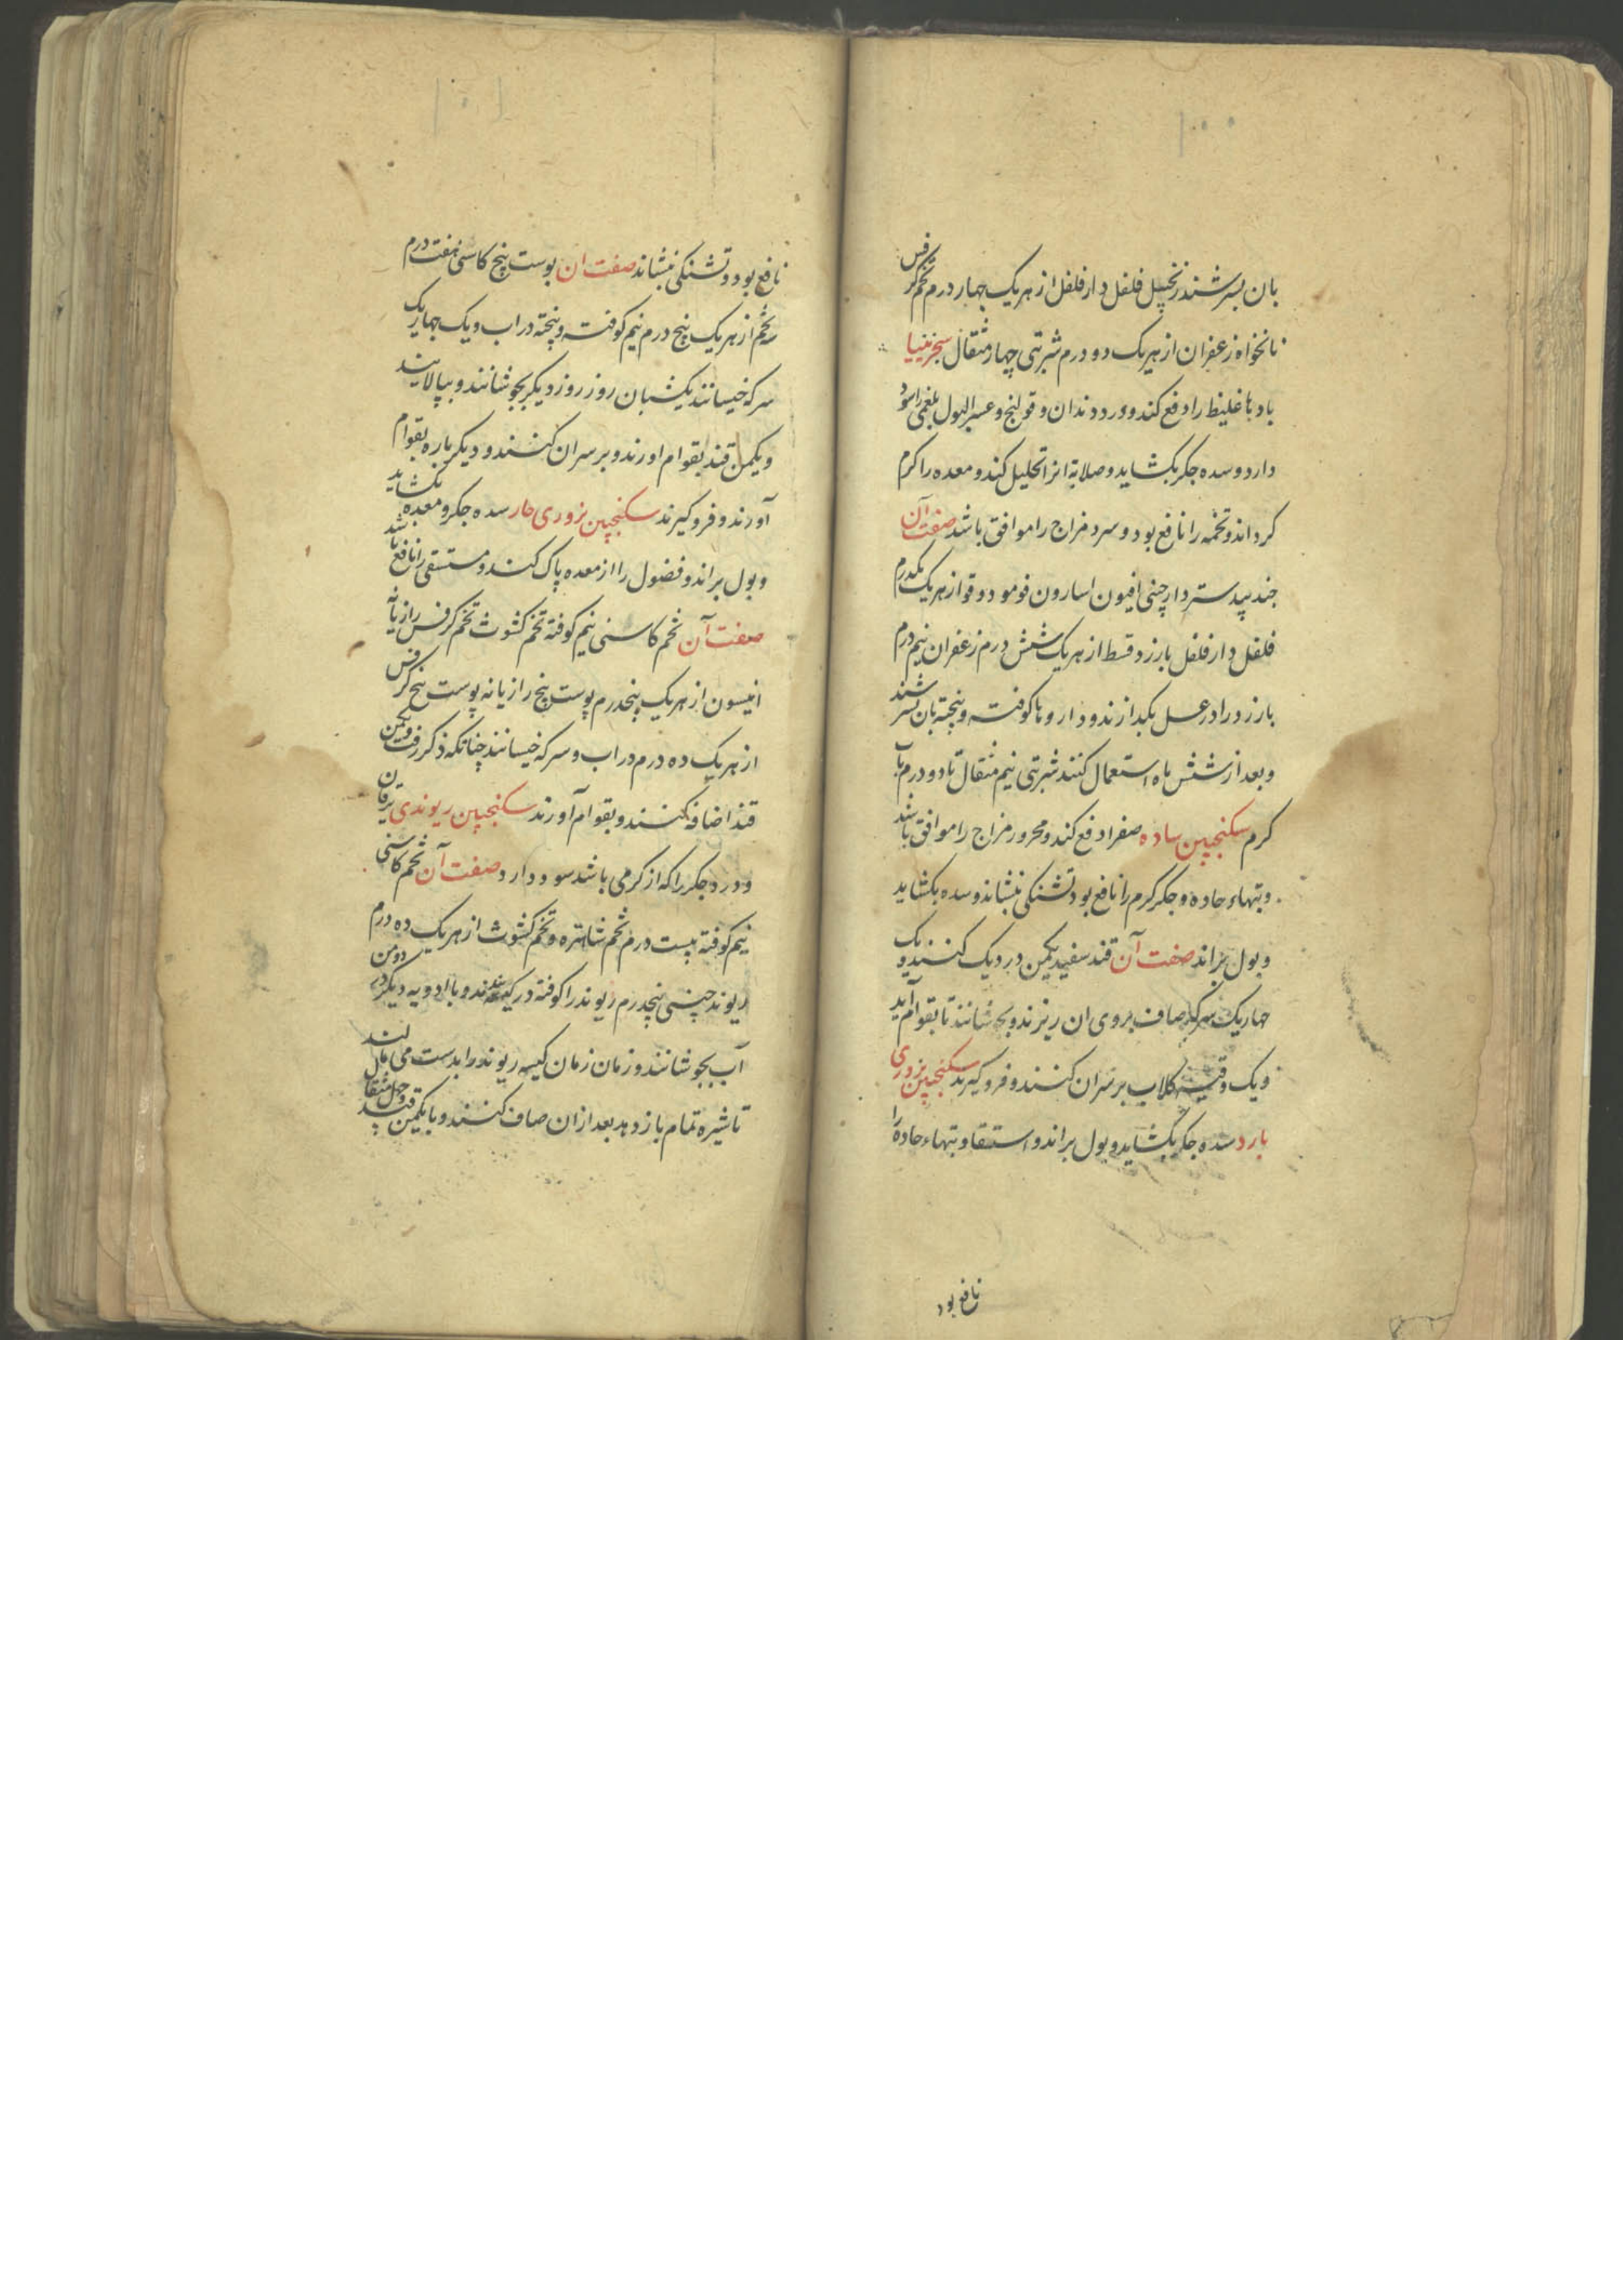 ۱۰۰
بان بسرشند زنجبیل فلفل دارفلفل از هریک چهار درم تخم کرفس
نانخواه زعفران از هریک دو درم شربتی چهار مثقال سجزنییا
بادها غلیظ را دفع کند و درد دندان و قولنج و عسر البول بلغمی را سود
دارد و سده جکر بکشاید و صلابة انرا تحلیل کند و معده را کرم
کرداند و تخمه را نافع بود و سرد مزاج را موافق باشد صفت آن
جند بیدستر دارچینی افیون اسارون فو مو دوقو از هریک یکدرم
فلفل دارفلفل بارزد قسط از هریک شش درم زعفران نیم درم
بارزد را در عسل بکدازند و داروها کوفته و بیخته بان بسرشند
و بعد از شش ماه استعمال کنند شربتی نیم مثقال تا دو درم بآب
کرم سکنجبین ساده صفرا دفع کند و محرور مزاج را موافق باشد
و تبهاء حاده و جکر کرم را نافع بود تشنکی بنشاند و سده بکشاید
و بول براند صفت آن قند سفید یکمن در دیک کنند و یک
چهاریک سرکه صاف بروی ان ریزند و بجوشانند تا بقوام آید
و یک وقیه کلاب بر سر ان کنند و فرو کیرند سکنجبین بزوری
بارد سده جکر بکشاید و بول براند و استسقا و تبهاء حاده را
نافع بود
۱۰۱
نافع بود و تشنکی بنشاند صفت ان پوست بیخ کاسنی هفت درم
سه تخم از هریک پنج درم نیم کوفته و پخته در اب و یک چهاریک
سرکه خیسانند یکشبان روز روز دیکر بجوشانند و بپالایند
و یکمن قند بقوام اورند و بر سر ان کنند و دیکر باره بقوام
آورند و فرو کیرند سکنجبین بزوری حار سده جکر و معده بکشاید
و بول براند و فضول را از معده پاک کند و مستسقی را نافع باشد
صفت آن تخم کاسنی نیم کوفته تخم کشوث تخم کرفس رازیانه
انیسون از هریک پنجدرم پوست بیخ رازیانه پوست بیخ کرفس
از هریک ده درم در اب و سرکه خیسانند چنانکه ذکر رفت و یکمن
قند اضافه کنند و بقوام آورند سکنجبین ریوندی یرقان
و درد جکر را که از کرمی باشد سود دارد صفت آن تخم کاسنی
نیم کوفته بیست درم تخم شاهتره و تخم کشوث از هریک ده درم
ریوند چینی پنجدرم ریوند را کوفته در کیسه بندند و با ادویه دیکر در دو من
آب بجوشانند و زمان زمان کیسه ریوند را بدست می مالند
تا شیره تمام باز دهد بعد از ان صاف کنند و با یکمن قند و چهل مثقال